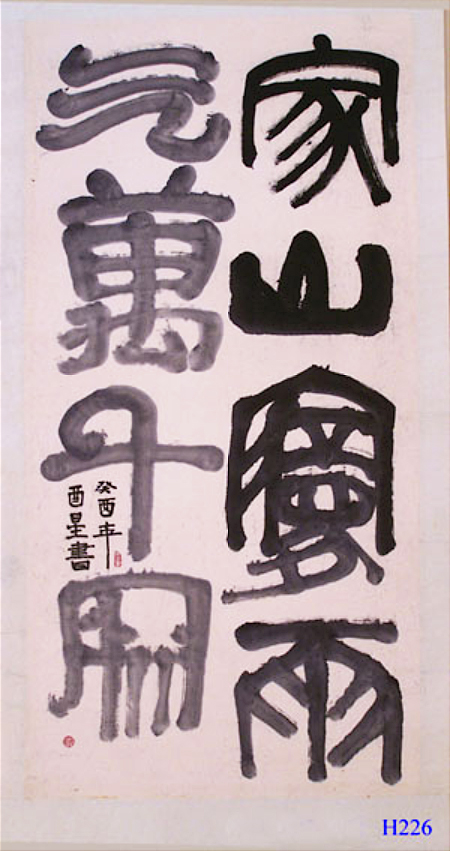 家山夢雨
气萬千
癸酉年
酉星書
H226